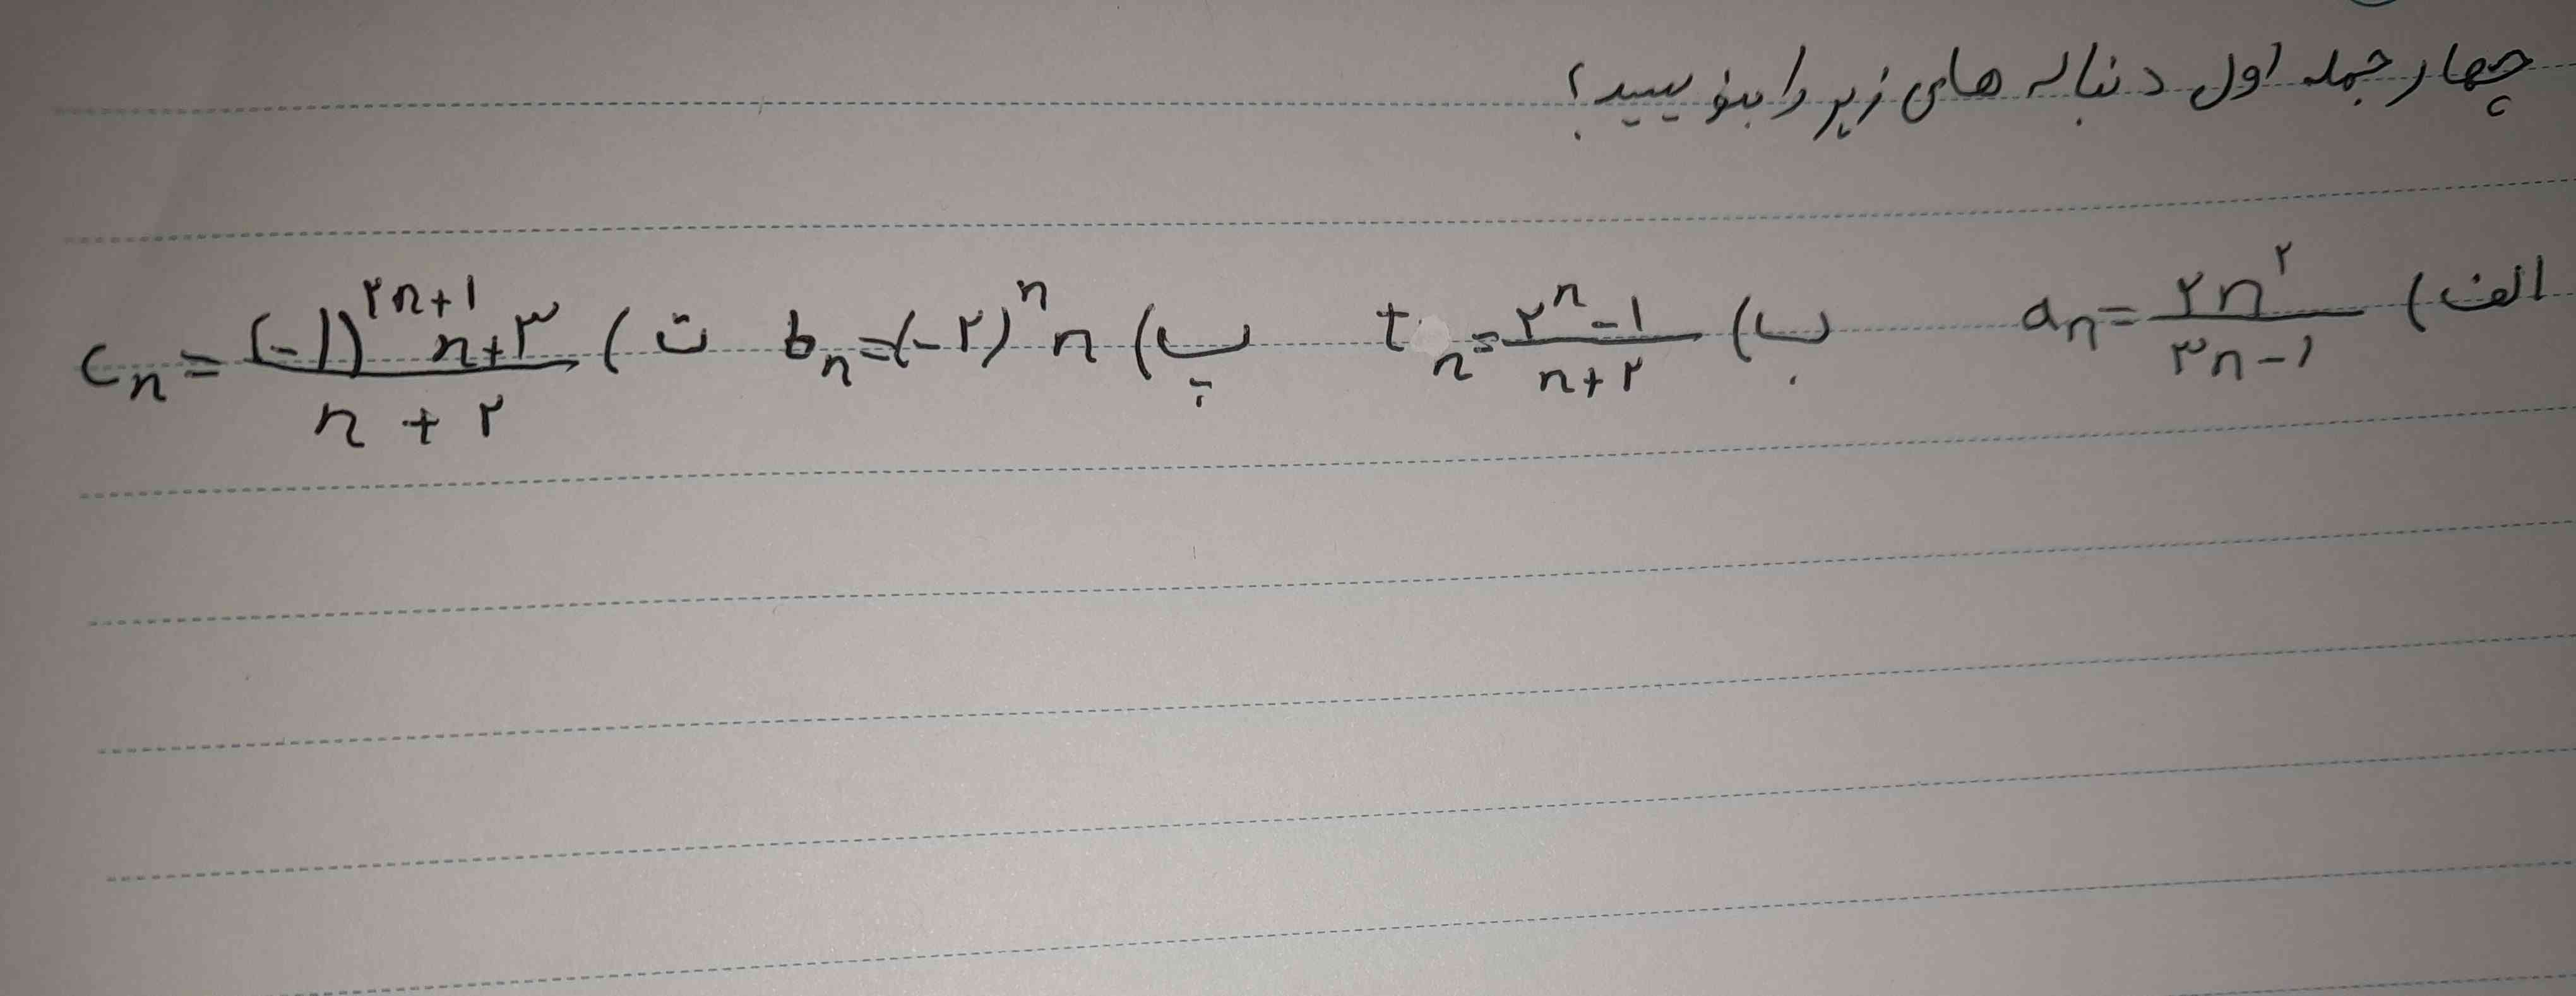 چهار جمله اول دنباله های زیر را بنویسید؟
الف) aₙ = ۲n^۲ / ۳n-۱   ب) tₙ = ۲^n - ۱ / n+۲   پ) bₙ = (-۲)^n n   ت) cₙ = (-۱)^۲n+۱ n+۳ / n+۲